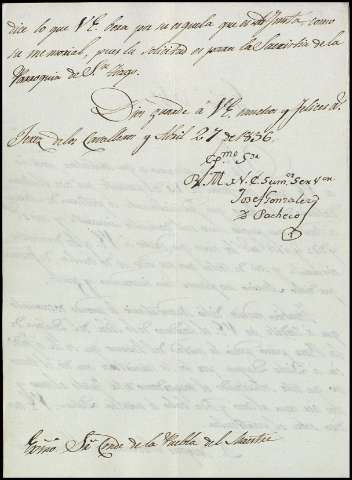 dice lo que V.E. por su esquela que es adjunta, como
su memorial, pues la solicitud es para la Sacristia de la
Parroquia de S.n Tiago.
Dios guarde á V.E. muchos y felices a.s
Jerez de los Cavalleros y Abril 27 de 1836.
Exmo. Sor.
B. L. M. de V. E. su m.or servor.
Josef Gonzalez
D Pacheco
Exmo. Sr. Conde de la Puebla del Maestre